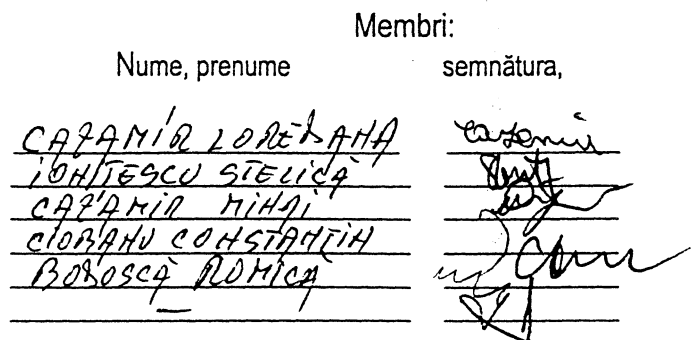 Membri:
Nume, prenume semnătura,
CAZAMIR LOREDANA Cazamir
IONITESCU STELICĂ
CAZAMIR MIHAI
CIOBANU CONSTANTIN
BOBOSCĂ ROMICĂ
—